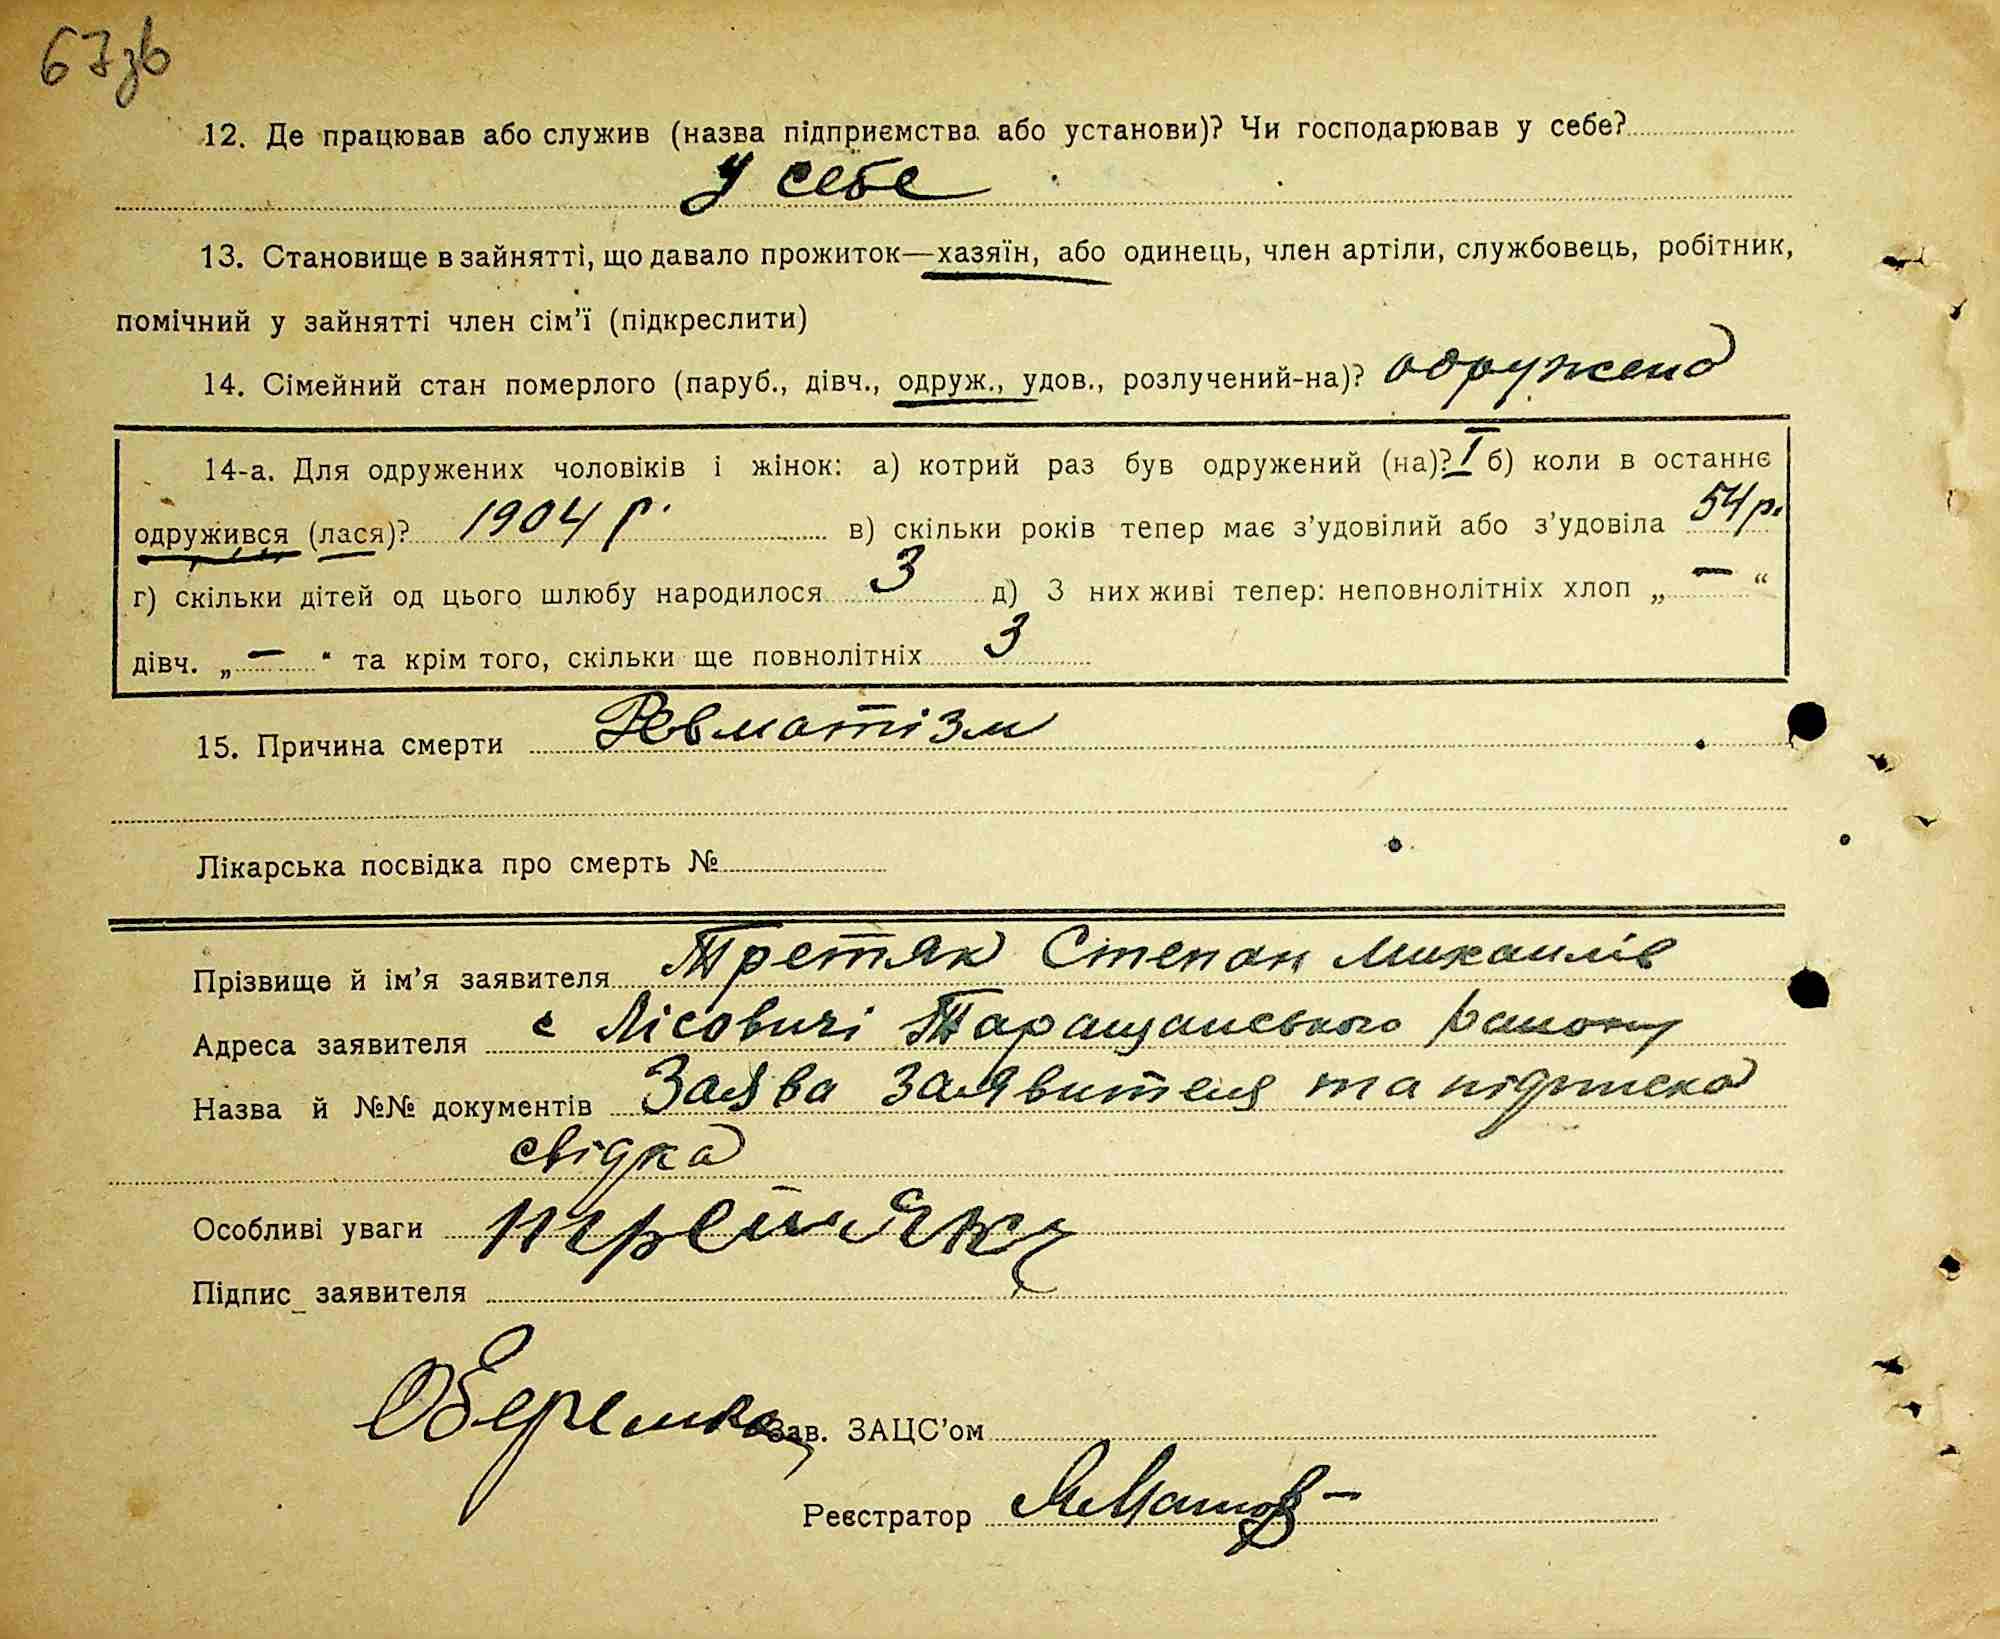 67зв
12. Де працював або служив (назва підприємства або установи)? Чи господарював у себе?
у себе
13. Становище в зайнятті, що давало прожиток—хазяїн, або одинець, член артіли, службовець, робітник,
помічний у зайнятті член сім'ї (підкреслити)
14. Сімейний стан померлого (паруб., дівч., одруж., удов., розлучений-на)? одружено
14-а. Для одружених чоловіків і жінок: а) котрий раз був одружений (на)? I б) коли в останнє
одружився (лася)? 1904 р. в) скільки років тепер має з'удовілий або з'удовіла 54 р.
г) скільки дітей од цього шлюбу народилося 3 д) З них живі тепер: неповнолітніх хлоп „ — “
дівч. „ — “ та крім того, скільки ще повнолітніх 3
15. Причина смерти Ревматізм
Лікарська посвідка про смерть №
Прізвище й ім'я заявителя Третяк Степан Михаилів
Адреса заявителя с Лісовичі Таращанського району
Назва й №№ документів Заява заявителя та підписка
свідка
Особливі уваги
Підпис заявителя
Зав. ЗАЦС'ом
Реєстратор